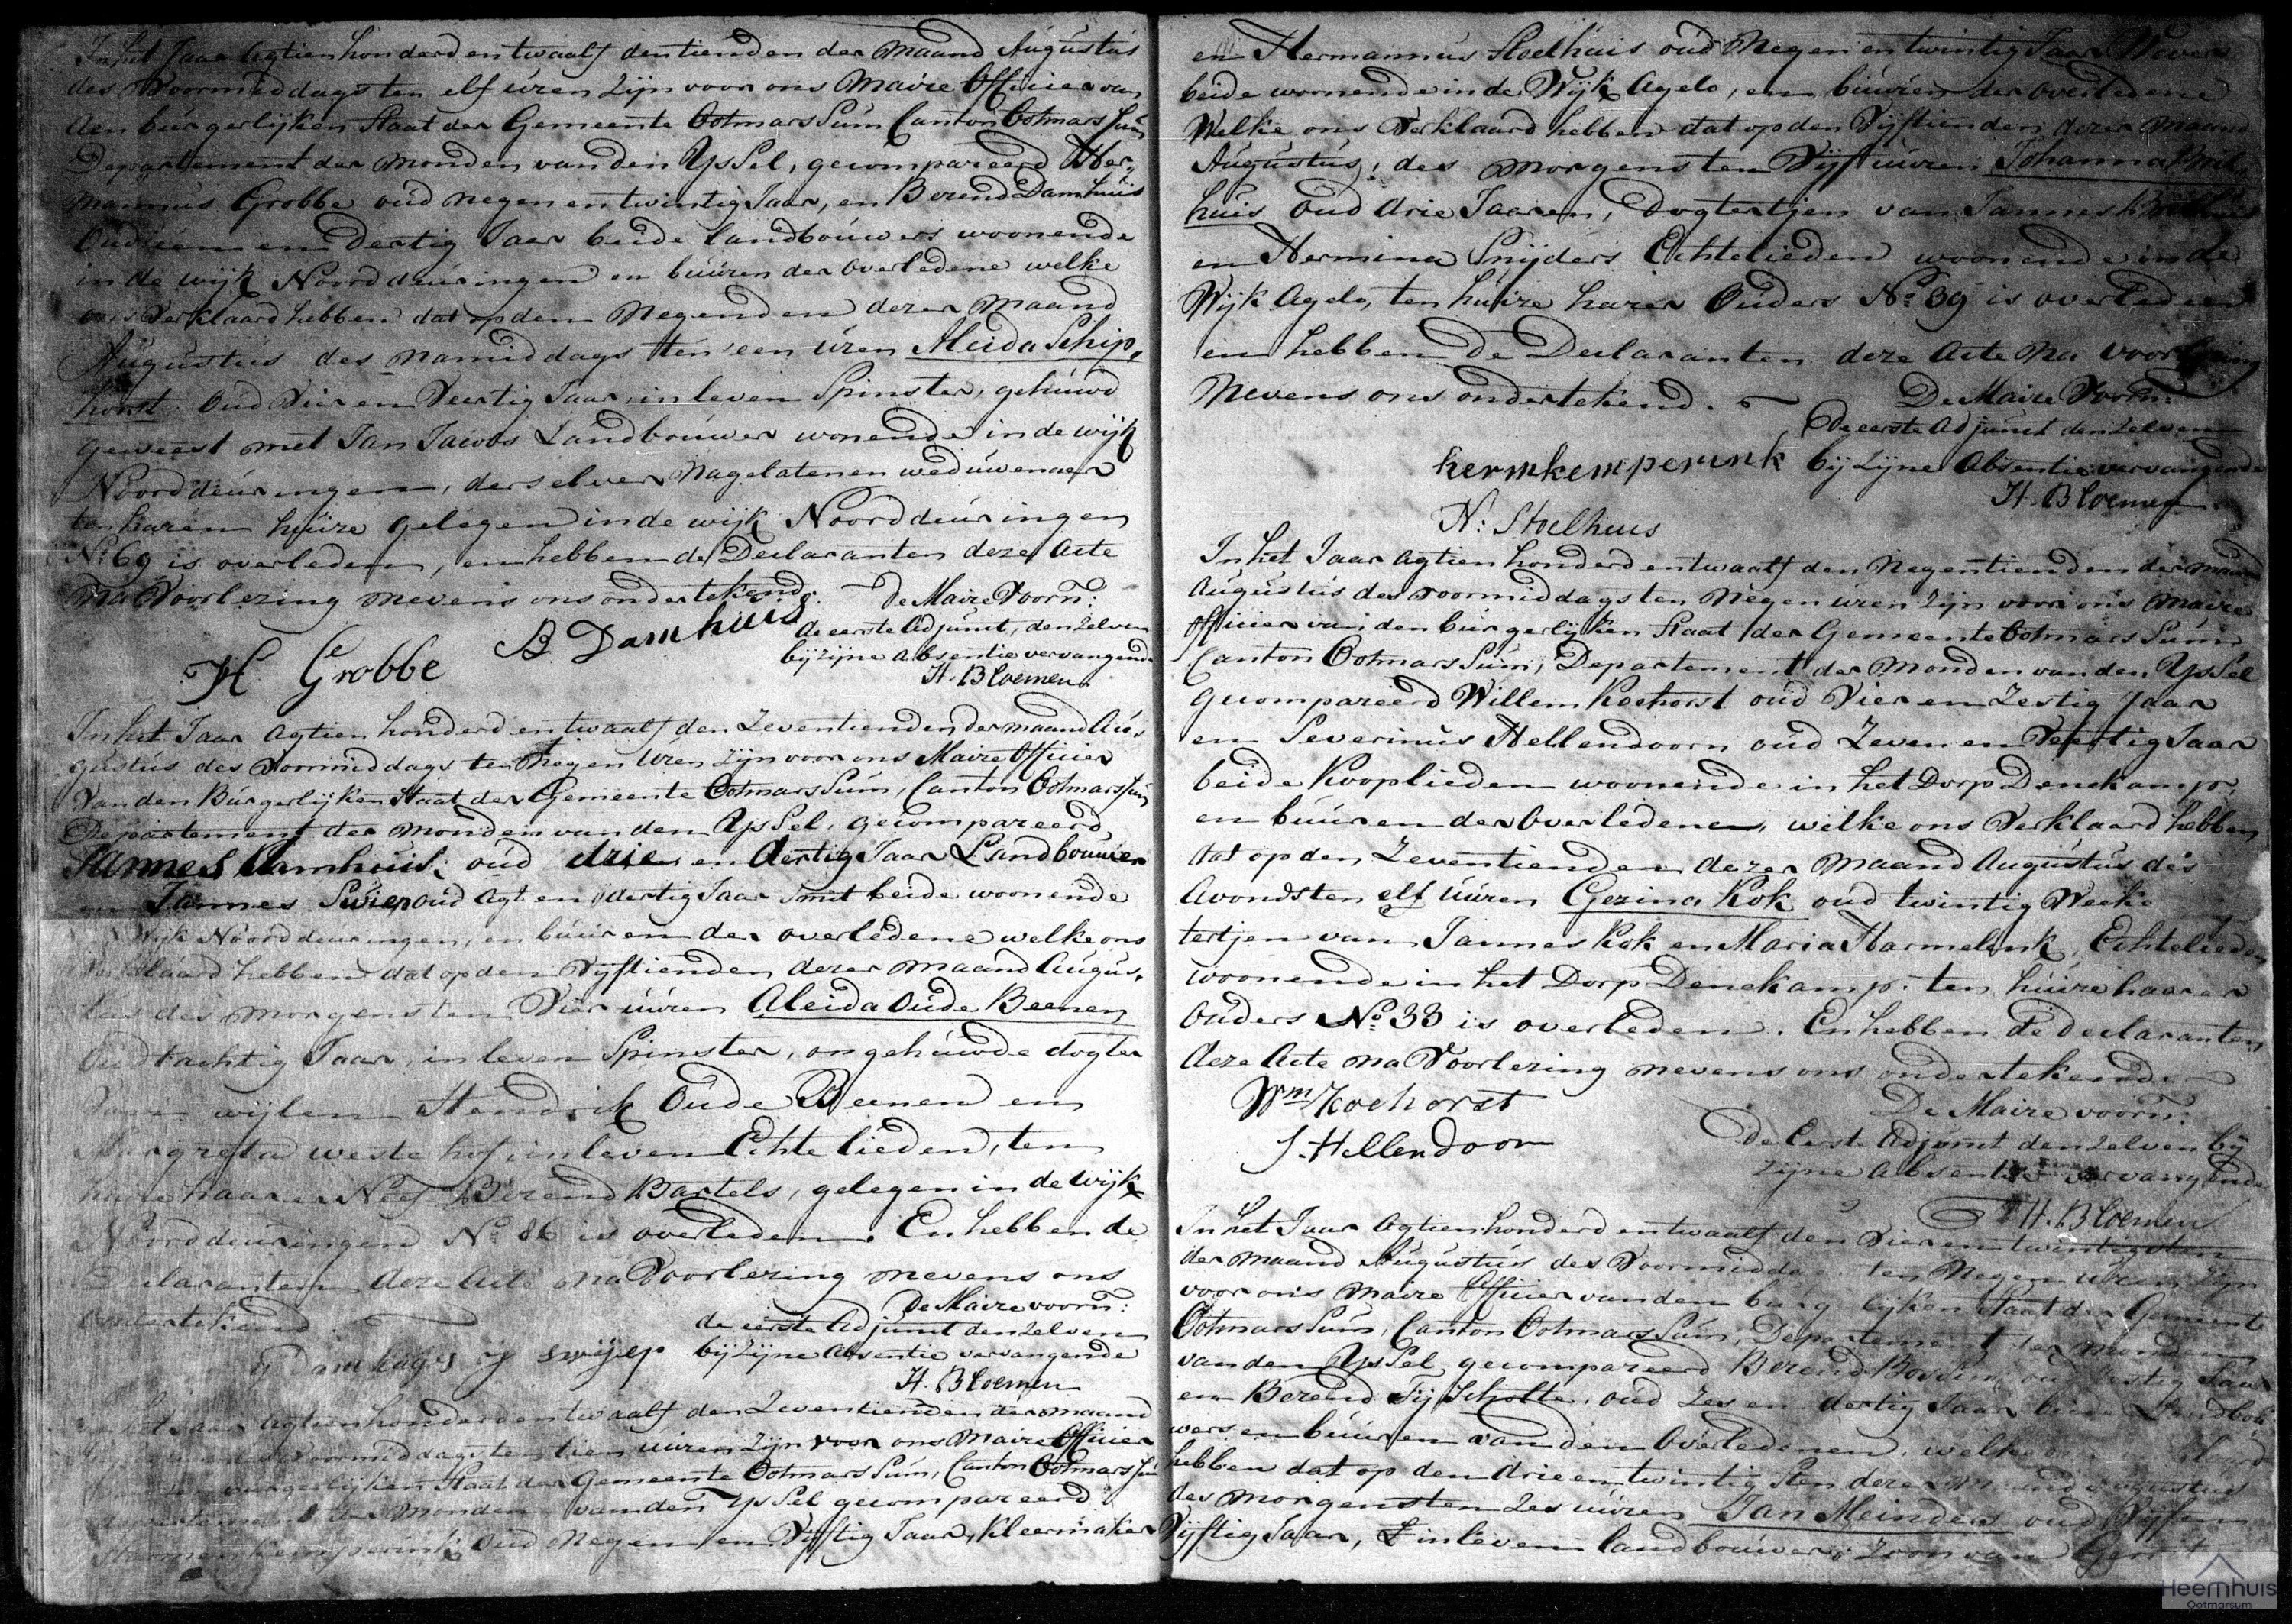 In het Jaar Agtienhonderd en twaalf den tienden der Maand Augustus
des Voormiddags ten elf uren zijn voor ons Maire Officier van
den burgerlijken Staat der Gemeente OotmarsSum Canton OotmarsSum
Departement der Monden van den YsSel, gecompareerd Her„
mannus Grobbe oud negen en twintig Jaar, en Berend Damhuis
Oud een en Dertig Jaar beide landbouwers woonende
in de wijk Noorddeuringen en buuren der overledene welke
ons Verklaard hebben dat op den Negenden dezer Maand
Augustus des namiddags ten een uren Aleida Schip„
horst Oud Vier en Veertig Jaar, in leven Spinster, gehuwd
geweest met Jan Jacobs Landbouwer wonende in de wijk
Noorddeuringen, derselver Nagelatenen weduwenaer
ten haren huize gelegen in de wijk Noorddeuringen
No. 69 is overleden, en hebben de Declaranten deze Acte
na Voorlezing nevens ons ondertekend.
De Maire Voorn:
de eerste Adjunct, den zelven
bij zijne absentie vervangende
H. Bloemen
B Damhuis
H Grobbe
In het Jaar Agtienhonderd en twaalf den Zeventienden der maand Au„
gustus des Voormiddags ten Negen Uren zijn voor ons Maire Officier
Van den Burgerlijken Staat der Gemeente OotmarsSum, Canton OotmarsSum
Departement der Monden van den YsSel, gecompareerd
Jannes Damhuis, oud drie en dertig Jaar Landbouwer
en Jannes Swiep oud Agt en dertig Jaar Smit beide woonende
Wijk Noorddeuringen, en buuren der overledene welke ons
Verklaard hebben dat op den Vijftienden dezer maand Augus„
tus des morgens ten Vier uuren Aleida Oude Beenen
Oud tachtig Jaar, in leven Spinster, ongehuwde dogter
Van wijlen Hendrik Oude Beenen en
Margreta westehof in leven Echtelieden, ten
huize haarer Neef Berend Bartels, gelegen in de wijk
Noorddeuringen No 86 is overleden. En hebben de
Declaranten deze Acte na Voorlezing nevens ons
ondertekend.
De Maire voorn:
de eerste Adjunct den zelven
bij zijne Absentie vervangende
H. Bloemen
J swijep
In het Jaar Agtienhonderd en twaalf den Zeventienden der maand
Voormiddags ten tien uuren zijn voor ons Maire Officier
burgerlijken Staat der Gemeente OotmarsSum, Canton OotmarsSum
Departement der Monden van den YsSel gecompareerd
Harmen Kemperink Oud Negen en Vijftig Jaar, Kleermaker
en Hermannus Stoelhuis oud Negen en twintig Jaar Wever
beide woonende in de Wijk Agelo, en buuren der overledene
Welke ons Verklaard hebben dat op den Vijftienden dezer Maand
Augustus, des Morgens ten Vijf uuren Johanna
huis Oud drie Jaaren, Dogtertjen van Jannes
en Hermina Snijders Echtelieden woonende in de
Wijk Agelo, ten huize harer Ouders No 39 is overleden
en hebben de Declaranten deze Acte na voorlezing
Nevens ons ondertekend.
De Maire Voorn:
De eerste Adjunct den zelven
bij zijne Absentie vervangende
H. Bloemen
hermkemperink
H: Stoelhuis
In het Jaar Agtienhonderd en twaalf den Negentienden der maand
Augustus des voormiddags ten Negen uren zijn voor ons Maire
Officier van den burgerlijken Staat der Gemeente OotmarsSum
Canton OotmarsSum, Departement der Monden van den YsSel
gecompareerd Willem Koehorst oud Vier en Zestig Jaar
en Severinus Hellendoorn oud Zeven en Veertig Jaar
beide Kooplieden woonende in het Dorp Denekamp,
en buuren der overledenen, welke ons Verklaard hebben
dat op den Zeventienden dezer Maand Augustus des
Avonds ten elf uuren Gezina Kok oud twintig Weeke
tertjen van Jannes Kok en Maria Harmelink, Echtelieden
woonende in het Dorp Denekamp. ten huize haarer
Ouders No 33 is overleden. En hebben de declaranten
deze Acte na Voorlezing nevens ons ondertekend
De Maire voorn:
de Eerste Adjunct den zelven bij
zijne Absentie vervangende
H. Bloemen
Wm Koehorst
S. Hellendoorn
In het Jaar Agtienhonderd en twaalf den Vier en twintigsten
der maand Augustus des Voormiddags ten Negen uren zijn
voor ons Maire Officier van den burg lijken Staat der Gemeente
OotmarsSum, Canton OotmarsSum, Departement der Monden
van den YsSel gecompareerd Berend
en Berend Tijscholte, oud Zes en dertig Jaar beide Landbou
wers en buuren van den Overledenen, welke
hebben dat op den drie en twintigsten dezer maand Augustus
des morgens ten Zes uuren Jan Meinders oud Vijf en
Vijftig Jaar, in leven landbouwer, Zoon van Gerrit
Heemhuis
Ootmarsum